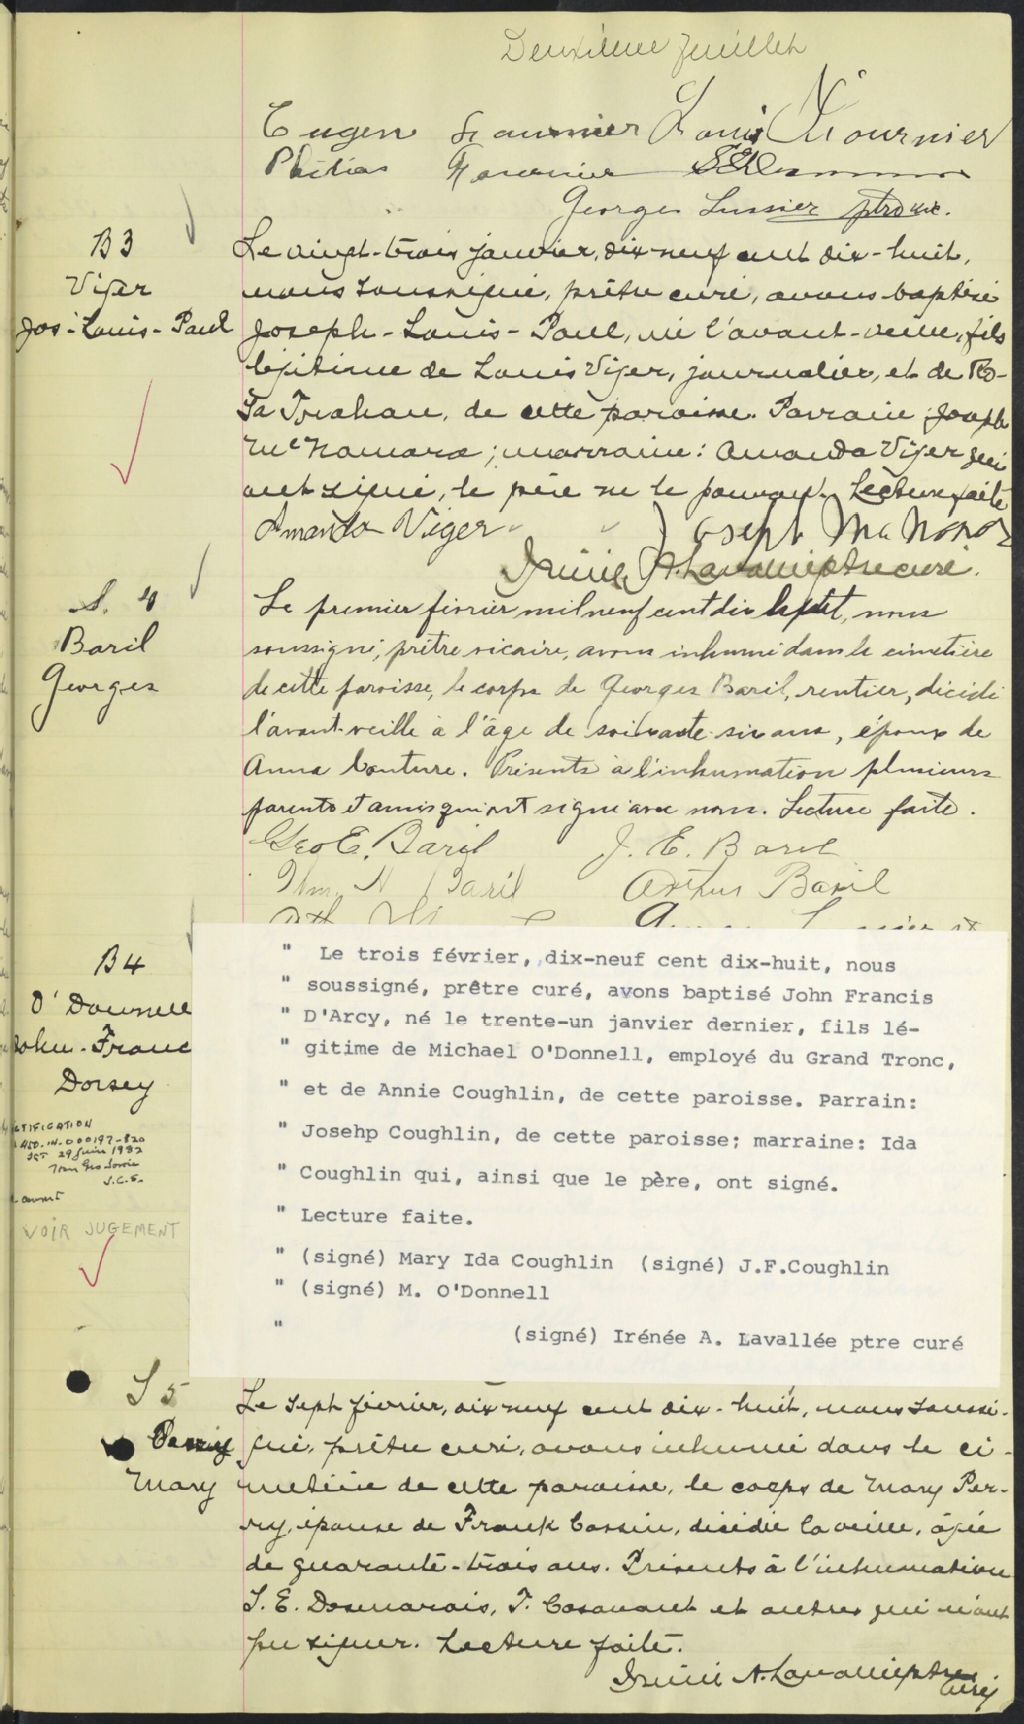 Deuxième feuillet
Eugene Fournier Louis N. Fournier
Philias Fournier
Georges Lussier ptre vic.
B3
Viger
Jos-Louis-Paul
Le vingt-trois janvier, dix neuf cent dix-huit,
nous soussigné, prêtre curé, avons baptisé
Joseph-Louis-Paul, né l'avant-veille, fils
légitime de Louis Viger, journalier, et de Ro-
sa Trahan, de cette paroisse. Parrain Joseph
McNamara; marraine: Amanda Viger qui
ont signé, le père ne le pouvant. Lecture faite
Amanda Viger Joseph McNamara
Irénée A. Lavallée ptre curé.
S. 4
Baril
Georges
Le premier février mil neuf cent dix huit, nous
soussigné, prêtre vicaire, avons inhumé dans le cimetière
de cette paroisse, le corps de Georges Baril, rentier, décédé
l'avant-veille à l'âge de soixante-six ans, époux de
Anna Couture. Présents à l'inhumation plusieurs
parents et amis qui ont signé avec nous. Lecture faite.
Geo E. Baril J. E. Baril
Wm N Baril Arthur Baril
B4
O'Donnell
John-Franc
Dorsey
CTIFICATION
450-14-000197-820
29 juin 1982
J.C.S.
VOIR JUGEMENT
" Le trois février, dix-neuf cent dix-huit, nous
" soussigné, prêtre curé, avons baptisé John Francis
" D'Arcy, né le trente-un janvier dernier, fils lé-
" gitime de Michael O'Donnell, employé du Grand Tronc,
" et de Annie Coughlin, de cette paroisse. Parrain:
" Josehp Coughlin, de cette paroisse; marraine: Ida
" Coughlin qui, ainsi que le père, ont signé.
" Lecture faite.
" (signé) Mary Ida Coughlin (signé) J.F.Coughlin
" (signé) M. O'Donnell
" (signé) Irénée A. Lavallée ptre curé
S 5
Perry
Mary
Le sept février, dix neuf cent dix-huit, nous soussi-
gné, prêtre curé, avons inhumé dans le ci-
metière de cette paroisse, le corps de Mary Per-
ry, épouse de Frank Cassin, décédée la veille, âgée
de quarante-trois ans. Présents à l'inhumation
J. E. Desmarais, F. Casavant et autres qui n'ont
pu signer. Lecture faite.
Irénée A. Lavallée ptre
curé